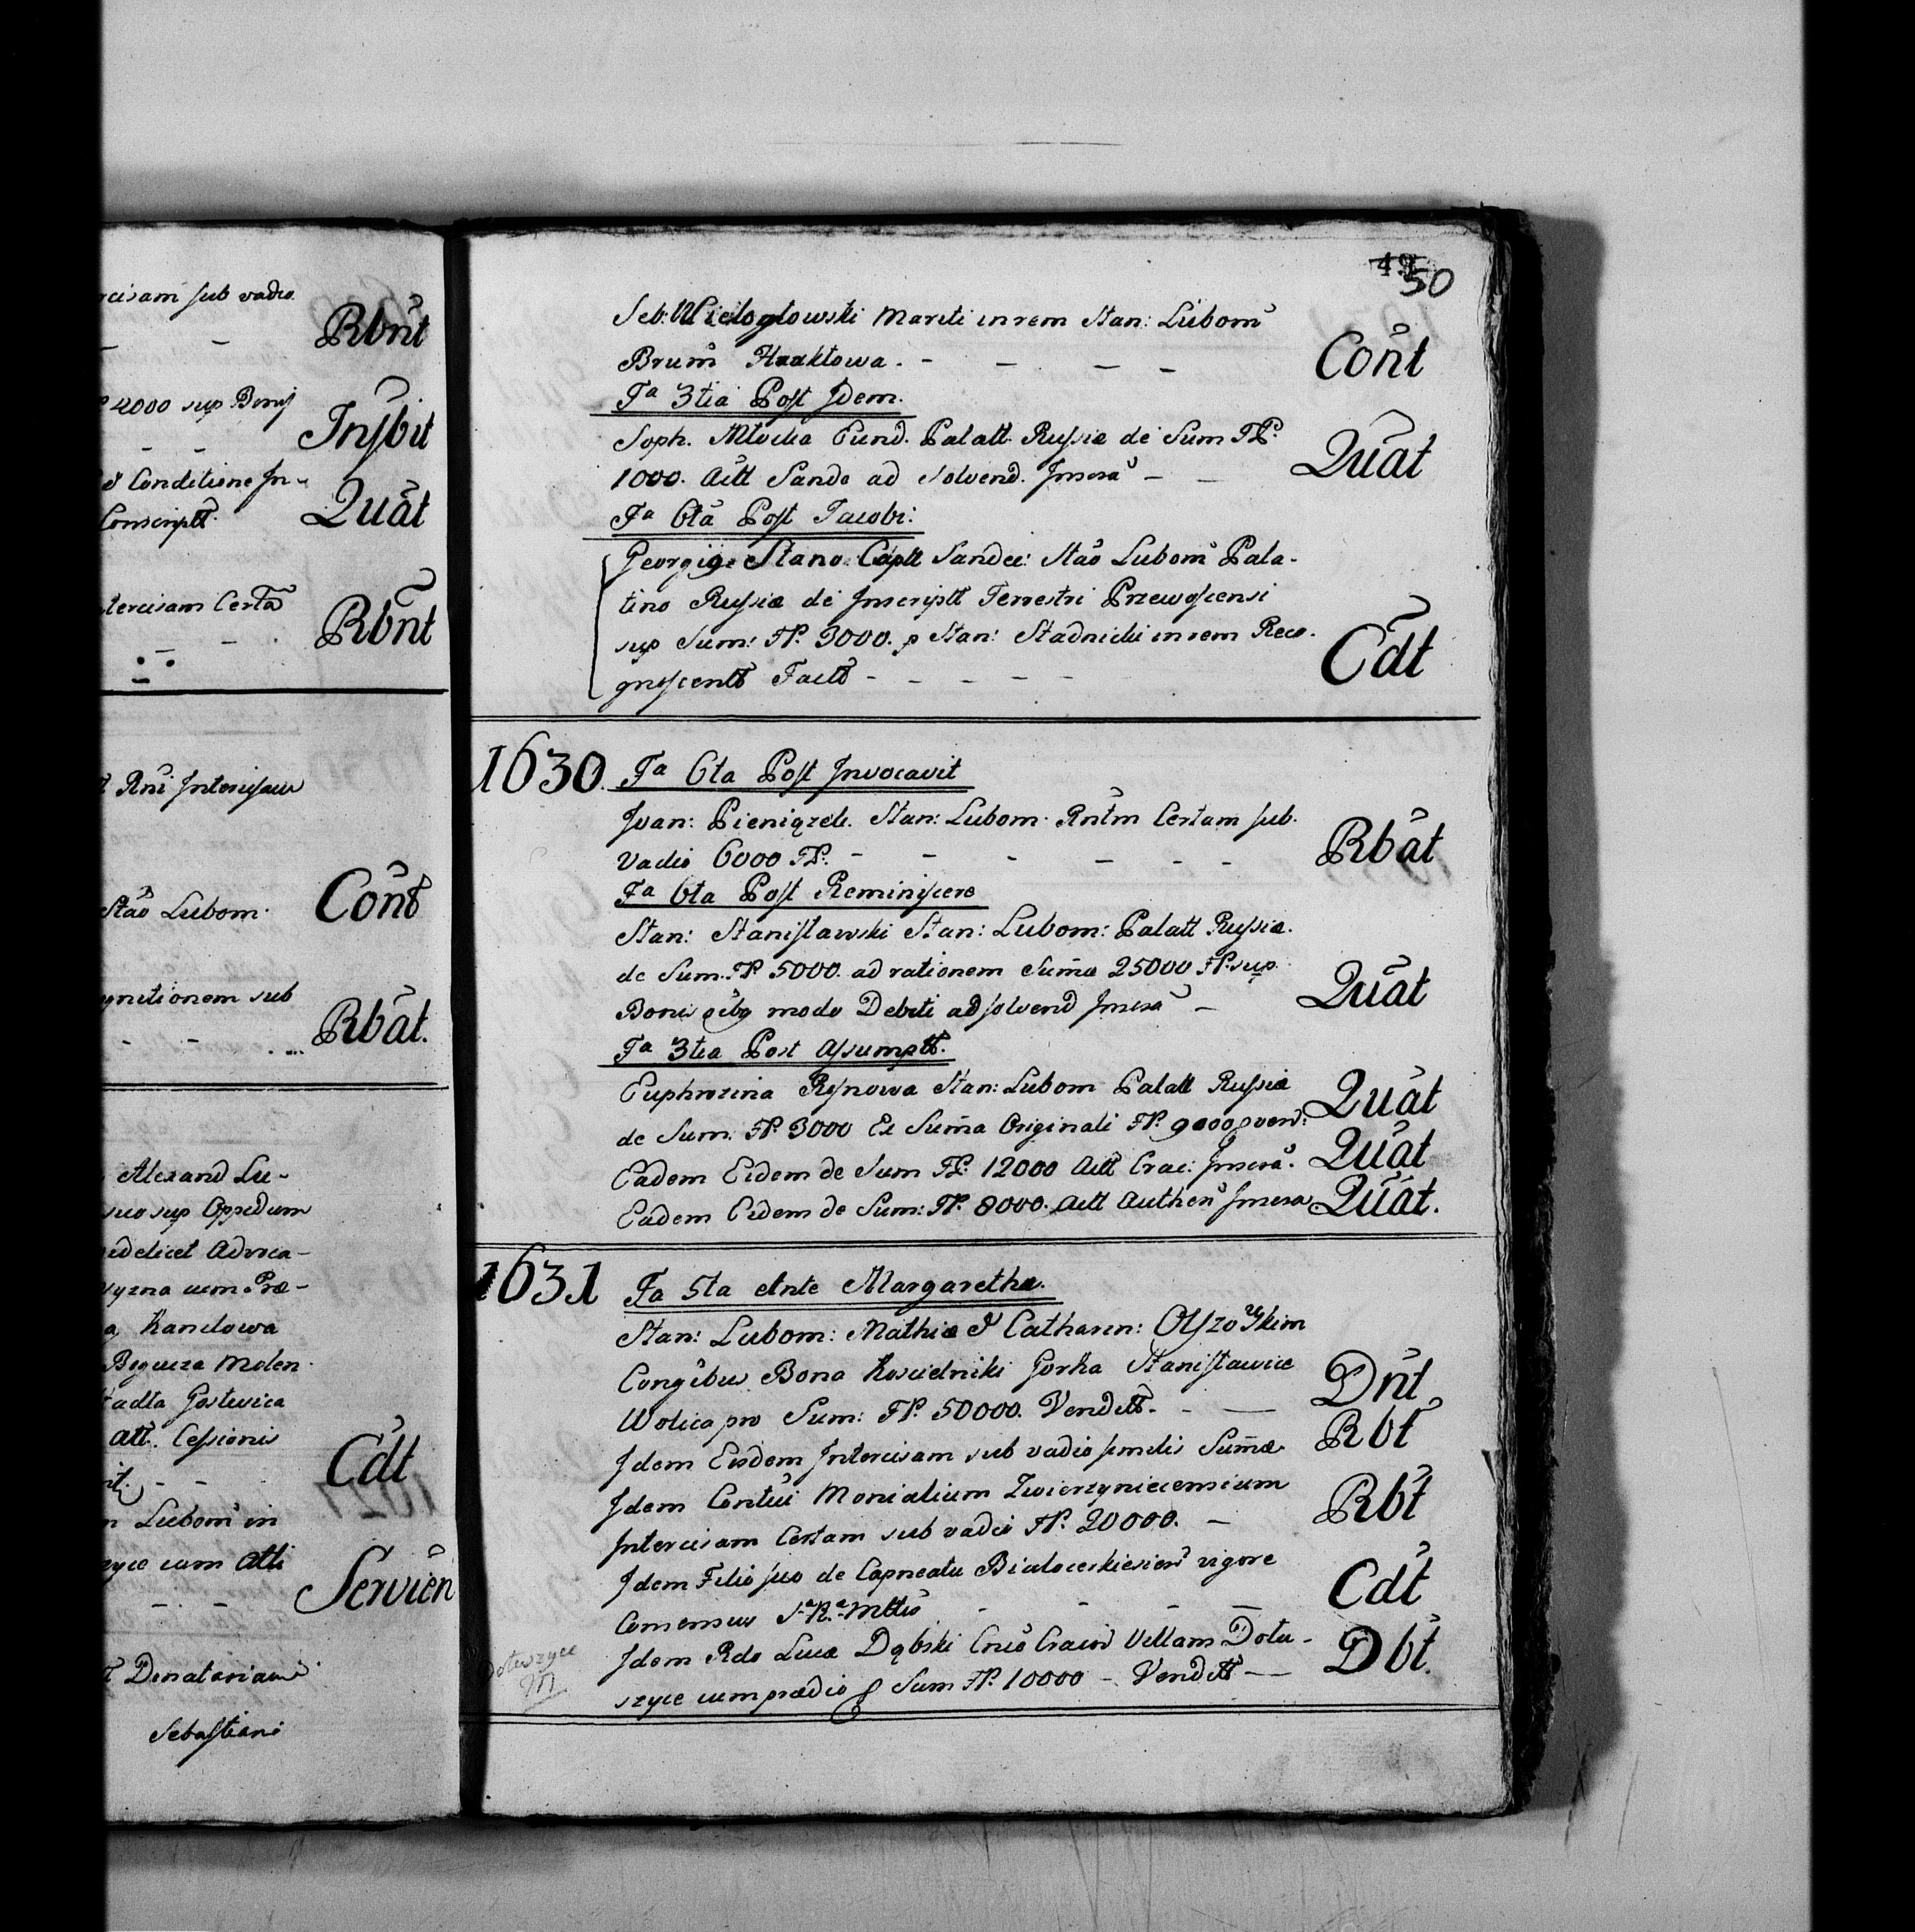 rcisam sub vadio
Rbnt
4000 sup Bonis
Insbit
Conditione In-
Conscriptt.
Quat
tercisam Certa
Rbnt
Rni Intercisam
Stao Lubom.
Cont
gnitionem sub
Rbat.
Alexand Lu-
suo sup Oppidum
idelicet Advoca-
yzna cum Præ-
Kandowa
Molen.
Gostwica
att. Cessionis
Cdt
Lubom in
zyce cum Atti
Servien
Donatoriam
Sebastiani
49
50
Seb: Wieloglowski Mariti in rem Stan: Lubom
Brum. -
Cont
Fa 3tia Post Idem.
Soph. Palatt. Russiæ de Sum FP.
1000. Actt Sande ad solvend. Inscra -
Quat
Fa 6ta Post Jacobi:
Georgi9 Stano. Captt Sandec: Stao Lubom Pala-
tino Russiæ de Inscriptt Terrestri Przewoscensi
sup Sum: FP. 3000. p Stan: Stadnicki in rem Reco-
gnoscentt Factt -
Cdt
1630. Fa 6ta Post Invocavit
Joan: Pieniązek. Stan: Lubom. Rntm Certam sub.
Vadio 6000 FP. -
Rbat
Fa 6ta Post Reminiscere
Stan: Stanisławski Stan: Lubom: Palatt Russiæ.
de Sum. FP. 5000. ad rationem Sumæ 25000 FP. sup
Bonis qibg modo Debiti ad solvend Inscra -
Quat
Fa 3tia Post Assumptt.
Euphrozina Rynowa Stan: Lubom Palatt Russiæ
de Sum. FP. 3000 Ex Suma Originali FP. 9000 proven:
Quat
Eadem Eidem de Sum FP. 12000 Actt Crac: Inscra.
Quat
Eadem Eidem de Sum: FP. 8000. Actt Authen Inscra
Quat.
1631 Fa 5ta Ante Margarethæ.
Stan: Lubom: Mathiæ & Catharin: Olszoỹskim
Congibus Bona Koscielniki Gorka Stanisławice
Wolica pro Sum: FP. 50000. Venditt. -
Dnt
Idem Eisdem Intercisam sub vadio similis Sumæ.
Rbt
Idem Contui Monialium Zwierzyniecensium
Intercisam Certam sub vadio FP. 20000. -
Rbt
Idem Filio suo de Capneatu Bialocerkiesien vigore
Consensus S. R. Mttis
Cdt
Idem Rdo Lucæ Dąbski Cnco Cracov Villam Dolu-
szyce cum prædio p Sum FP. 10000 - Venditt -
Dbt.